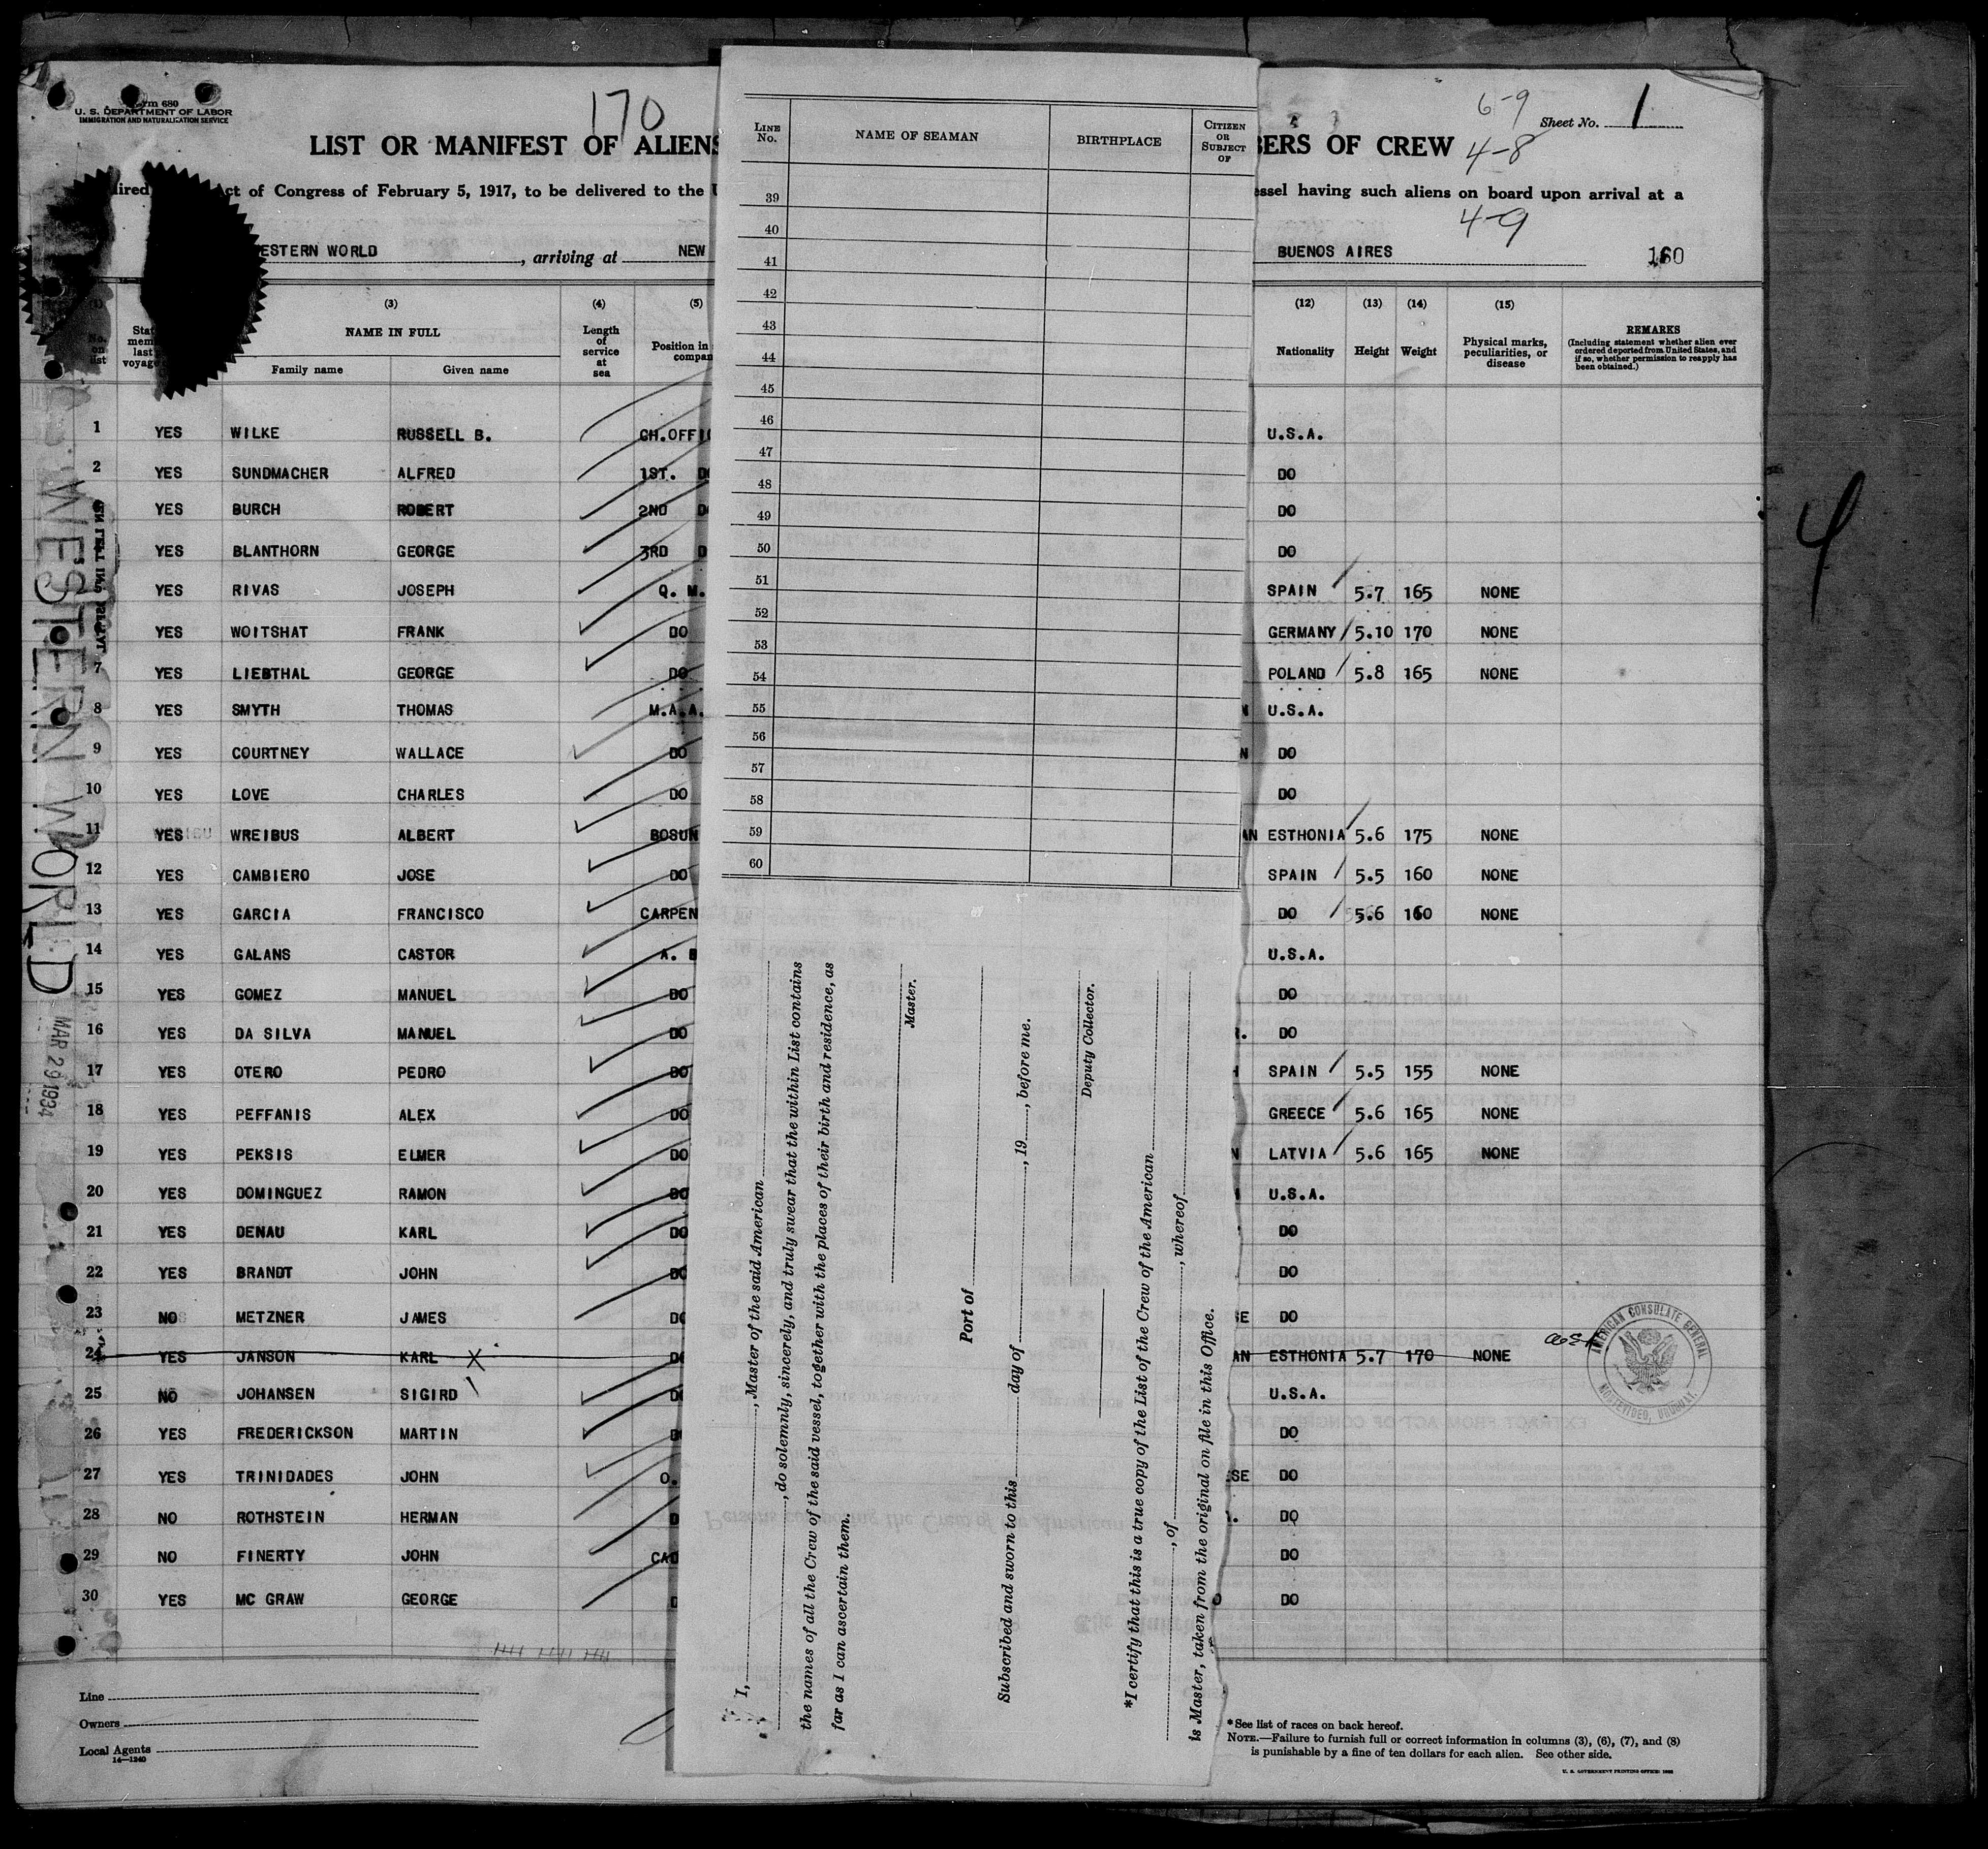 Form 680
U. S. DEPARTMENT OF LABOR
IMMIGRATION AND NATURALIZATION SERVICE
170
6-9
Sheet No. 1
LIST OR MANIFEST OF ALIENS
BERS OF CREW 4-8
Act of Congress of February 5, 1917, to be delivered to the
essel having such aliens on board upon arrival at a
4-9
ESTERN WORLD, arriving at NEW
BUENOS AIRES
(3) (4) (5) (12) (13) (14) (15)
No. on list
NAME IN FULL
Family name Given name
Length of service at sea
Position in
Nationality Height Weight
Physical marks, peculiarities, or disease
REMARKS
(Including statement whether alien ever ordered deported from United States, and if so, whether permission to reapply has been obtained.)
1 YES WILKE RUSSELL B. CH.OFFI U.S.A.
2 YES SUNDMACHER ALFRED 1ST. DO DO
YES BURCH ROBERT 2ND DO DO
YES BLANTHORN GEORGE 3RD D DO
YES RIVAS JOSEPH Q. M. SPAIN 5.7 165 NONE
YES WOITSHAT FRANK DO GERMANY 5.10 170 NONE
7 YES LIEBTHAL GEORGE DO POLAND 5.8 165 NONE
8 YES SMYTH THOMAS M.A.A. N U.S.A.
9 YES COURTNEY WALLACE DO N DO
10 YES LOVE CHARLES DO DO
11 YES WREIBUS ALBERT BOSUN AN ESTHONIA 5.6 175 NONE
12 YES CAMBIERO JOSE DO SPAIN 5.5 160 NONE
13 YES GARCIA FRANCISCO CARPEN DO 5.6 160 NONE
14 YES GALANS CASTOR A. B U.S.A.
15 YES GOMEZ MANUEL DO DO
16 YES DA SILVA MANUEL DO DO
17 YES OTERO PEDRO DO SPAIN 5.5 155 NONE
18 YES PEFFANIS ALEX DO GREECE 5.6 165 NONE
19 YES PEKSIS ELMER DO N LATVIA 5.6 165 NONE
20 YES DOMINGUEZ RAMON DO U.S.A.
21 YES DENAU KARL DO DO
22 YES BRANDT JOHN DO DO
23 NO METZNER JAMES DO SE DO
24 YES JANSON KARL X DO AN ESTHONIA 5.7 170 NONE
25 NO JOHANSEN SIGIRD DO U.S.A.
26 YES FREDERICKSON MARTIN D DO
27 YES TRINIDADES JOHN O. SE DO
28 NO ROTHSTEIN HERMAN D DO
29 NO FINERTY JOHN CAD DO
30 YES MC GRAW GEORGE D DO
AMERICAN CONSULATE GENERAL
MONTEVIDEO, URUGUAY.
Line
Owners
Local Agents
14—1240
*See list of races on back hereof.
NOTE.—Failure to furnish full or correct information in columns (3), (6), (7), and (8)
is punishable by a fine of ten dollars for each alien. See other side.
U. S. GOVERNMENT PRINTING OFFICE
WESTERN WORLD
MAR 29 1934
4
LINE No. NAME OF SEAMAN BIRTHPLACE CITIZEN OR SUBJECT OF
39
40
41
42
43
44
45
46
47
48
49
50
51
52
53
54
55
56
57
58
59
60
I, , Master of the said American
, do solemnly, sincerely, and truly swear that the within List contains
the names of all the Crew of the said vessel, together with the places of their birth and residence, as
far as I can ascertain them.
Master.
Port of
Subscribed and sworn to this day of , 19 , before me.
Deputy Collector.
*I certify that this is a true copy of the List of the Crew of the American
, of , whereof
is Master, taken from the original on file in this Office.